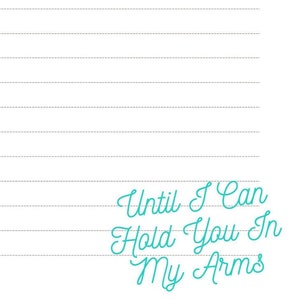 Until I Can
Hold You In
My Arms